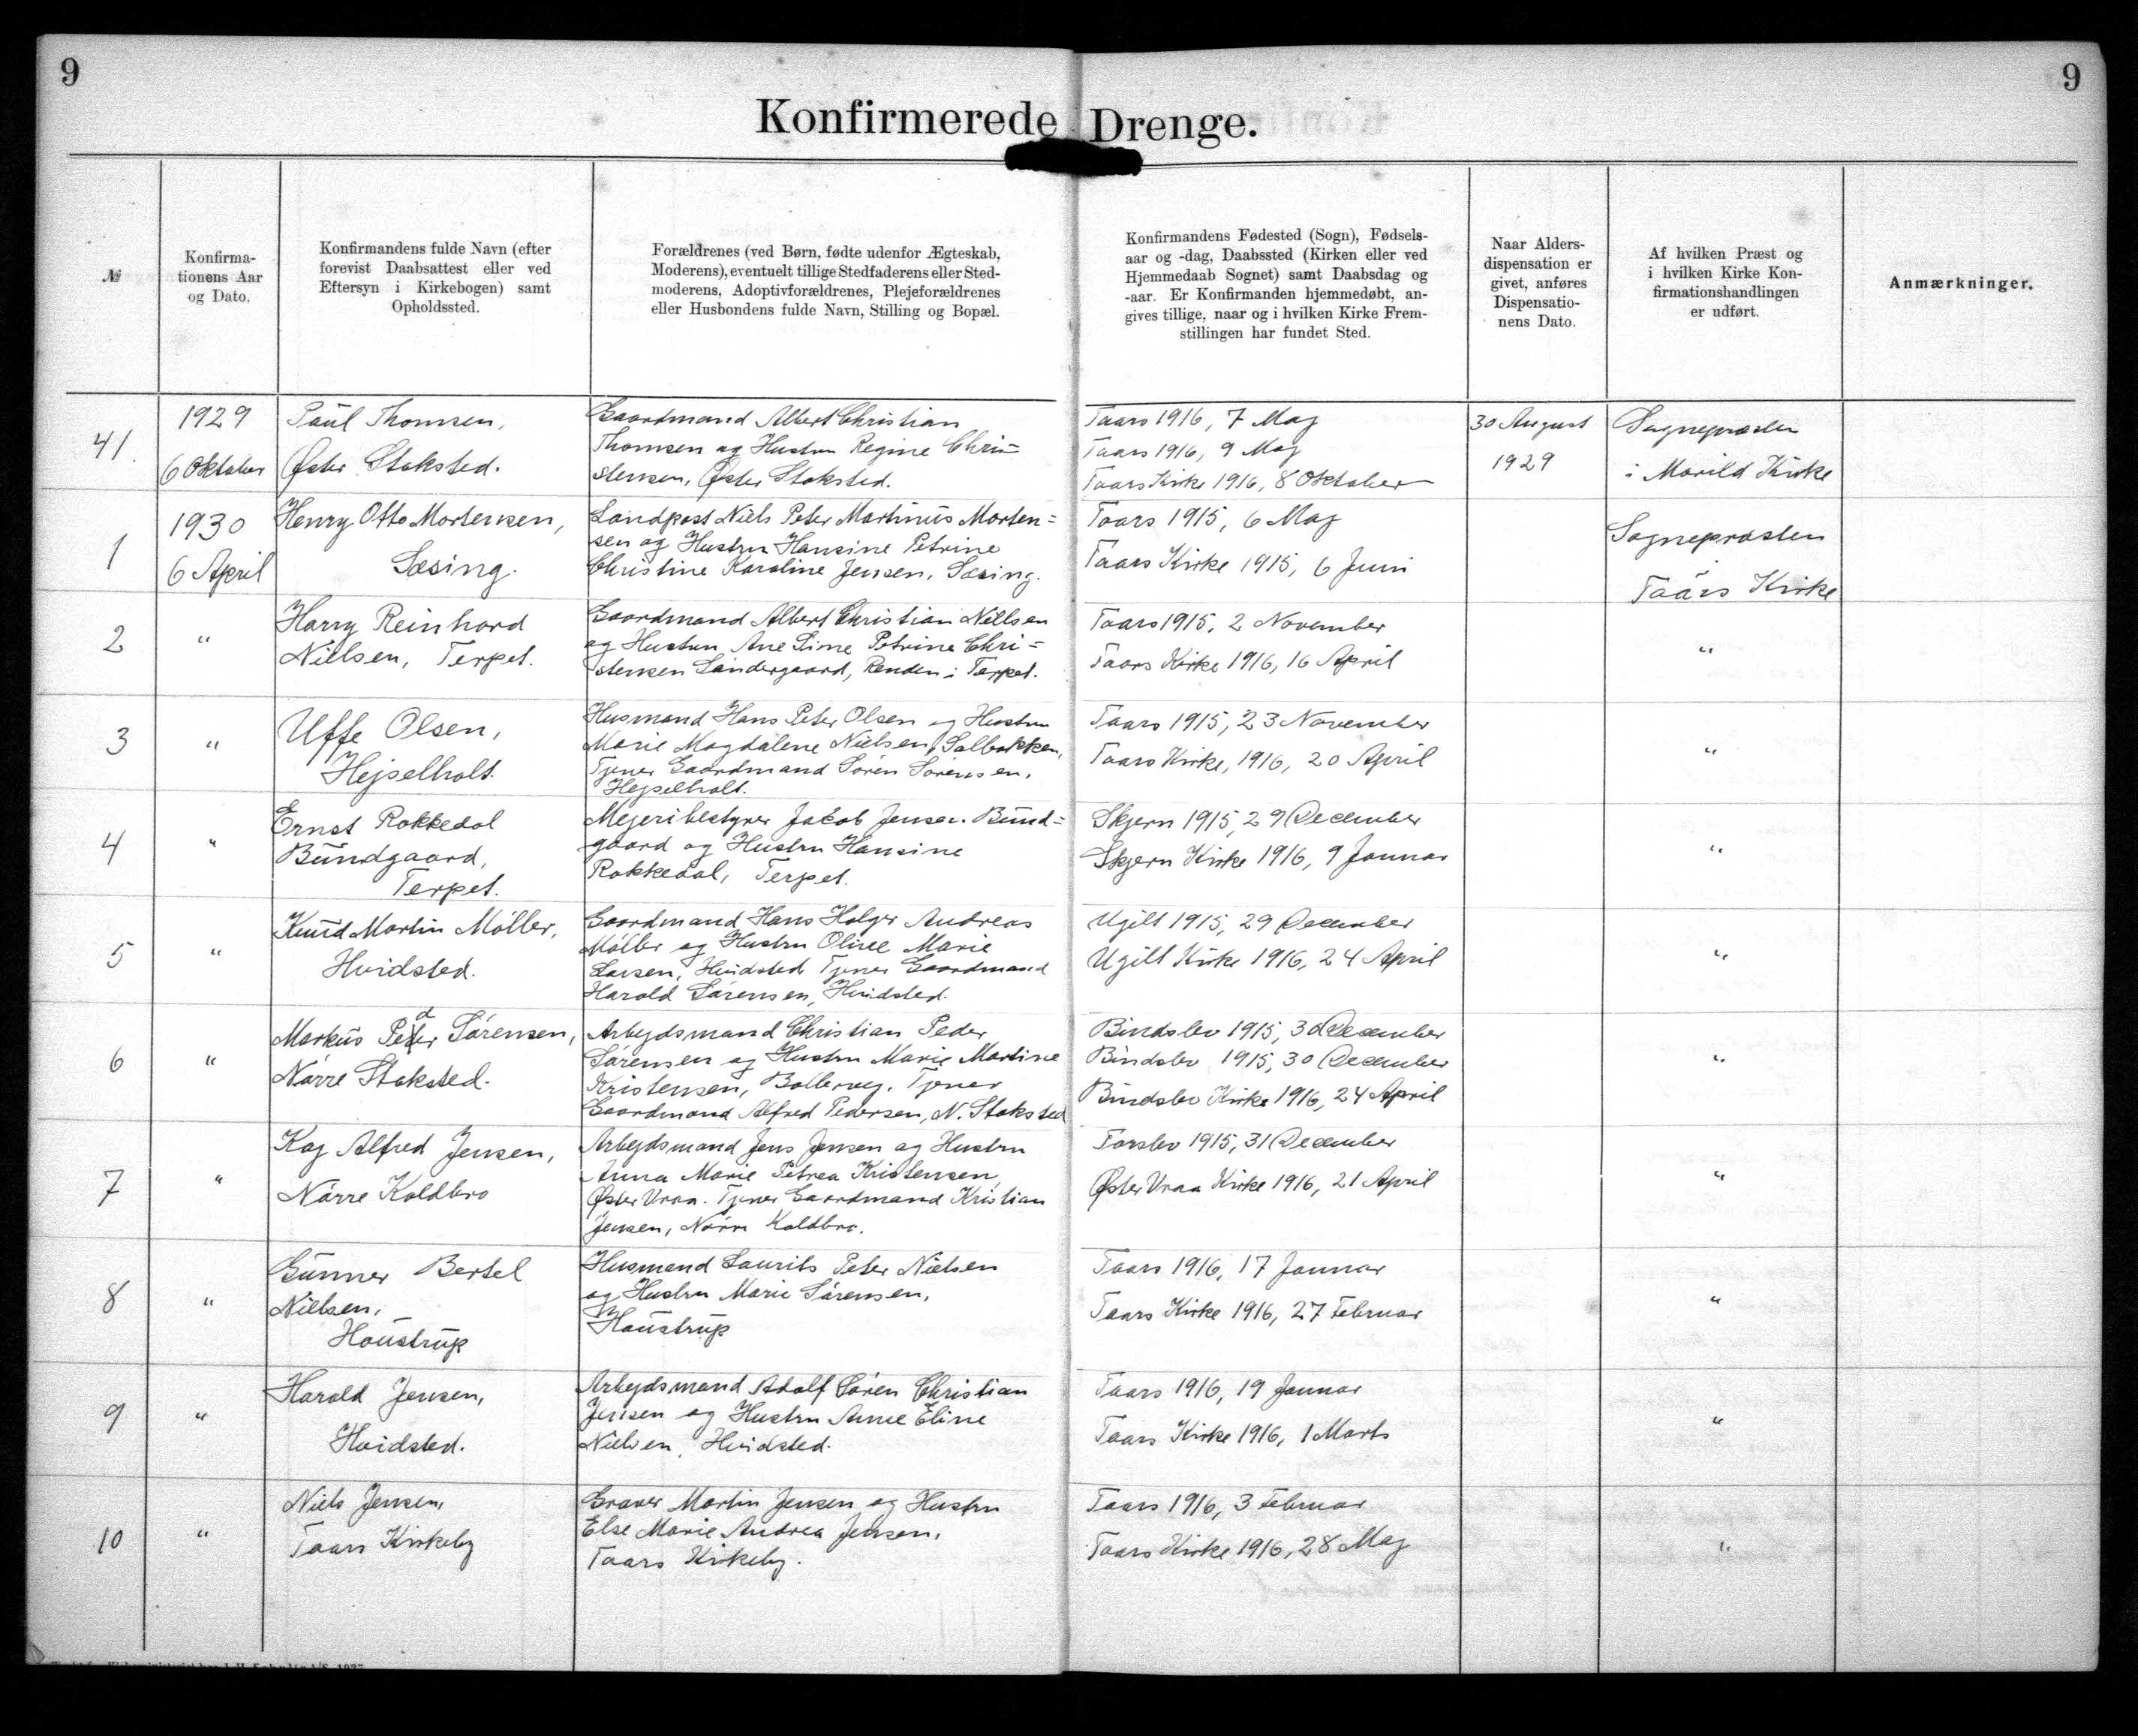 9
9
Konfirmerede Drenge.
№
Konfirma-
tionens Aar
og Dato.
Konfirmandens fulde Navn (efter
forevist Daabsattest eller ved
Eftersyn i Kirkebogen) samt
Opholdssted.
Forældrenes (ved Børn, fødte udenfor Ægteskab,
Moderens), eventuelt tillige Stedfaderens eller Sted-
moderens, Adoptivforældrenes, Plejeforældrenes
eller Husbondens fulde Navn, Stilling og Bopæl.
Konfirmandens Fødested (Sogn), Fødsels-
aar og -dag, Daabssted (Kirken eller ved
Hjemmedaab Sognet) samt Daabsdag og
-aar. Er Konfirmanden hjemmedøbt, an-
gives tillige, naar og i hvilken Kirke Frem-
stillingen har fundet Sted.
Naar Alders-
dispensation er
givet, anføres
Dispensatio-
nens Dato.
Af hvilken Præst og
i hvilken Kirke Kon-
firmationshandlingen
er udført.
Anmærkninger.
41.
1929
6 Oktober
Paul Thomsen,
Øster Stoksted.
Gaardmand Albert Christian
Thomsen og Hustru Regine Chri=
stensen, Øster Stoksted.
Taars 1916, 7 Maj
Taars 1916, 9 Maj
Taars Kirke 1916, 8 Oktober
30 August
1929
Sognepræsten
i Morild Kirke
1
1930
6 April
Henry Otto Mortensen,
Sæsing.
Landpost Niels Peter Martinus Morten=
sen og Hustru Hansine Petrine
Christine Karoline Jensen, Sæsing.
Taars 1915, 6 Maj
Taars Kirke 1915, 6 Juni
Sognepræsten
Taars Kirke
2
"
Harry Reinhard
Nielsen, Terpet.
Gaardmand Albert Christian Nielsen
og Hustru Ane Sine Petrine Chri=
stensen Søndergaard, Renden i Terpet.
Taars 1915, 2 November
Taars Kirke 1916, 16 April
"
3
"
Uffe Olsen,
Hejselholt.
Husmand Hans Peter Olsen og Hustru
Marie Magdalene Nielsen, Sølbakken,
Tjener Gaardmand Søren Sørensen,
Hejselholt.
Taars 1915, 23 November
Taars Kirke, 1916, 20 April
"
4
"
Ernst Rokkedal
Bundgaard,
Terpet.
Mejeribestyrer Jakob Jensen Bund=
gaard og Hustru Hansine
Rokkedal, Terpet.
Skjern 1915, 29 December
Skjern Kirke 1916, 9 Januar
"
5
"
Knud Martin Møller,
Hvidsted.
Gaardmand Hans Holger Andreas
Møller og Hustru Olivee Marie
Larsen, Hvidsted Tjener Gaardmand
Harald Sørensen, Hvidsted.
Ugilt 1915, 29 December
Ugilt Kirke 1916, 24 April
"
6
"
Markus Peder Sørensen,
Nørre Stoksted.
Arbejdsmand Christian Peder
Sørensen og Hustru Marie Martine
Kristensen, Bollervej. Tjener
Gaardmand Alfred Pedersen, N. Stoksted
Bindslev 1915, 30 December
Bindslev 1915, 30 December
Bindslev Kirke 1916, 24 April
"
7
"
Kaj Alfred Jensen,
Nørre Koldbro
Arbejdsmand Jens Jensen og Hustru
Anna Marie Petrea Kristensen,
Øster Vraa. Tjener Gaardmand Kristian
Jensen, Nørre Koldbro.
Torslev 1915, 31 December
Øster Vraa Kirke 1916, 21 April
"
8
"
Gunner Bertel
Nielsen,
Houstrup
Husmand Laurits Peter Nielsen
og Hustru Marie Sørensen,
Houstrup
Taars 1916, 17 Januar
Taars Kirke 1916, 27 Februar
"
9
"
Harald Jensen,
Hvidsted.
Arbejdsmand Adolf Søren Christian
Jensen og Hustru Anne Eline
Nielsen, Hvidsted.
Taars 1916, 19 Januar
Taars Kirke 1916, 1 Marts
"
10
"
Niels Jensen,
Taars Kirkeby
Graver Martin Jensen og Hustru
Else Marie Andrea Jensen,
Taars Kirkeby.
Taars 1916, 3 Februar
Taars Kirke 1916, 28 Maj
"